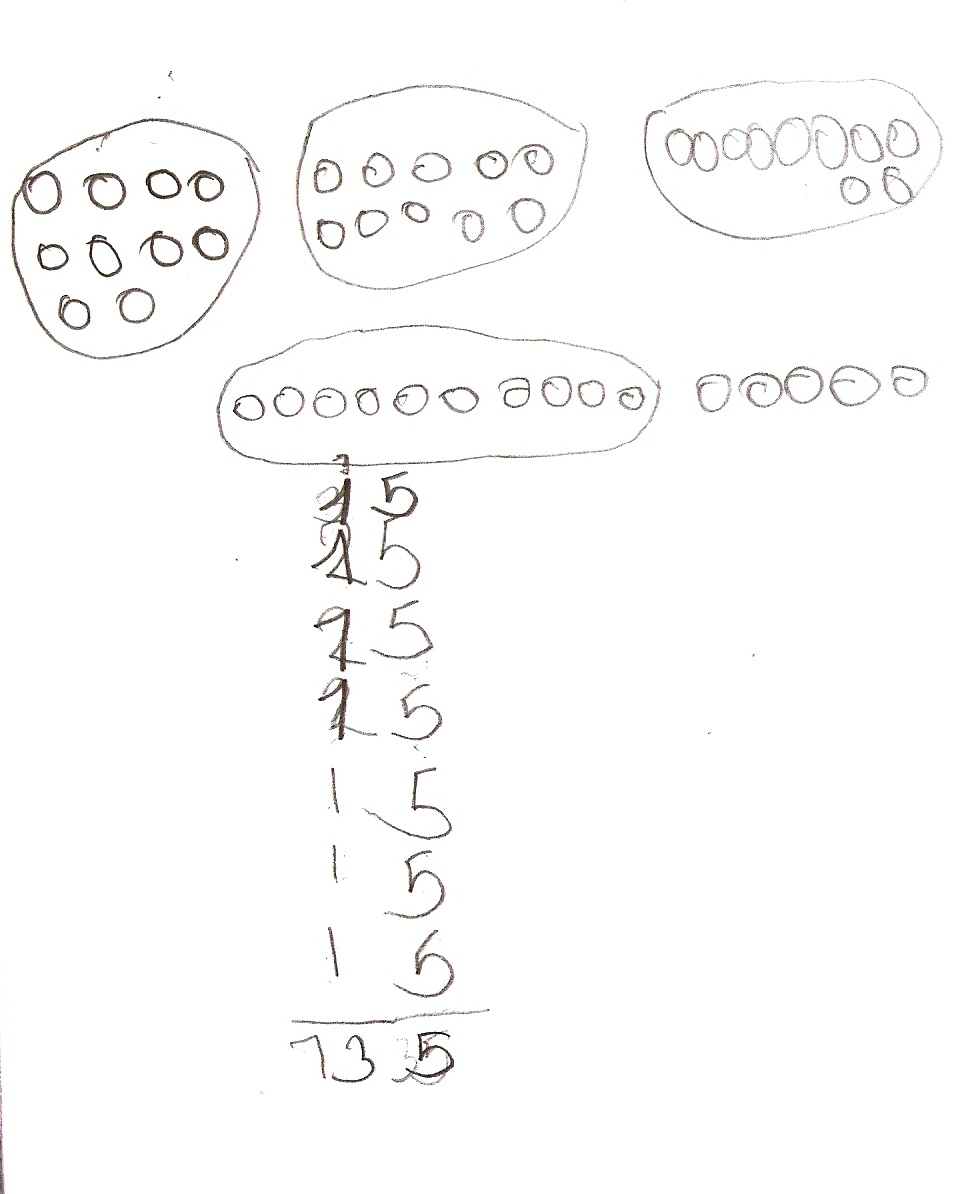 15
15
15
15
15
15
15
135